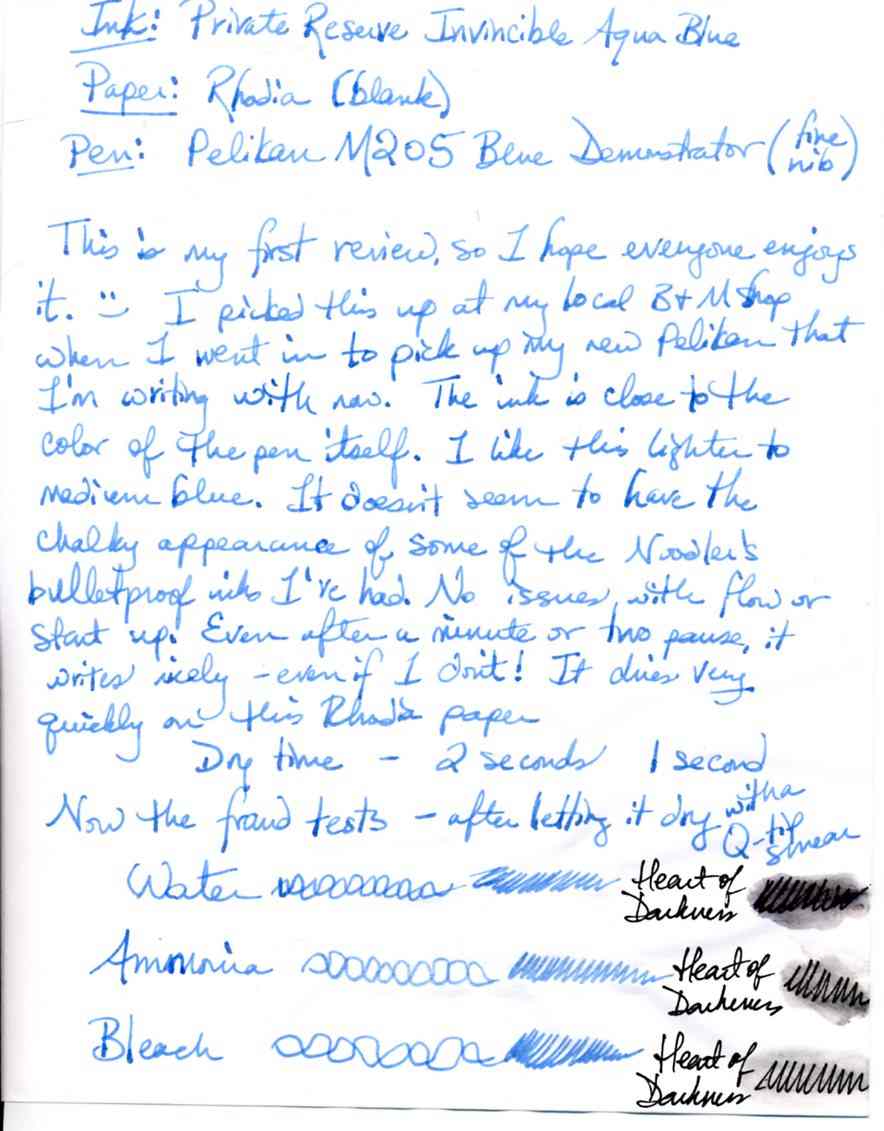 Ink: Private Reserve Invincible Aqua Blue
Paper: Rhodia (blank)
Pen: Pelikan M205 Blue Demonstrator (fine nib)
This is my first review, so I hope everyone enjoys
it. :) I picked this up at my local B+M shop
when I went in to pick up my new Pelikan that
I'm writing with now. The ink is close to the
color of the pen itself. I like this lighter to
medium blue. It doesn't seem to have the
chalky appearance of some of the Noodler's
bulletproof inks I've had. No issues with flow or
start up. Even after a minute or two pause, it
writes nicely - even if I don't! It dries very
quickly on this Rhodia paper
Dry time - 2 seconds 1 second
Now the fraud tests - after letting it dry with a
Q-tip smear
Water Heart of
Darkness
Ammonia Heart of
Darkness
Bleach Heart of
Darkness